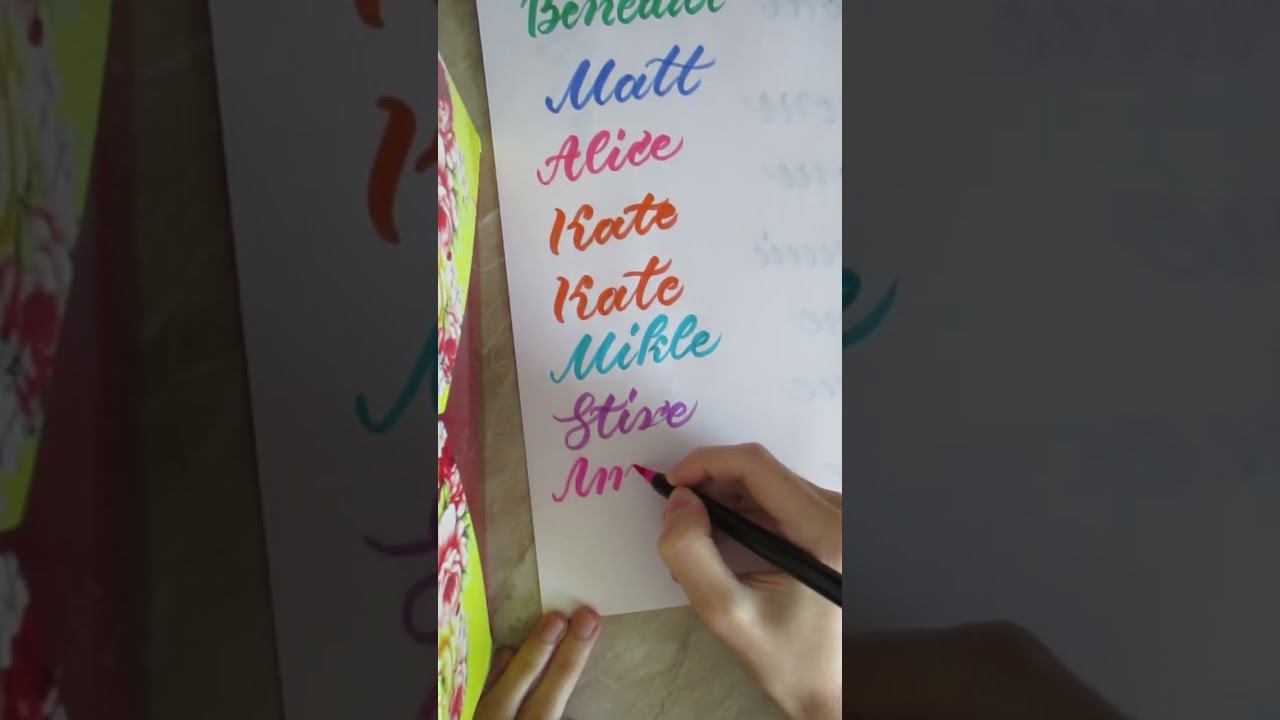 Benedict
Matt
Alice
Kate
Kate
Mikle
Stive
Ann